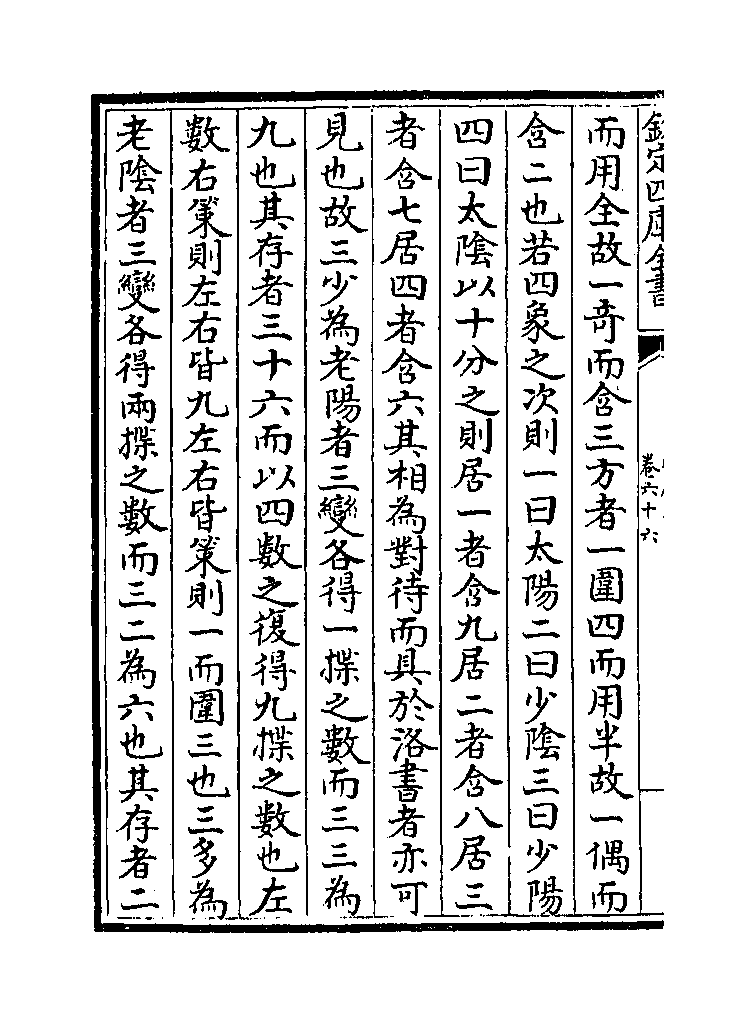 欽定四庫全書
卷六十六
而用全故一奇而含三方者一圍四而用半故一偶而
含二也若四象之次則一曰太陽二曰少陰三曰少陽
四曰太陰以十分之則居一者含九居二者含八居三
者含七居四者含六其相為對待而具於洛書者亦可
見也故三少為老陽者三變各得一揲之數而三三為
九也其存者三十六而以四數之復得九揲之數也左
數右策則左右皆九左右皆策則一而圍三也三多為
老陰者三變各得兩揲之數而三二為六也其存者二